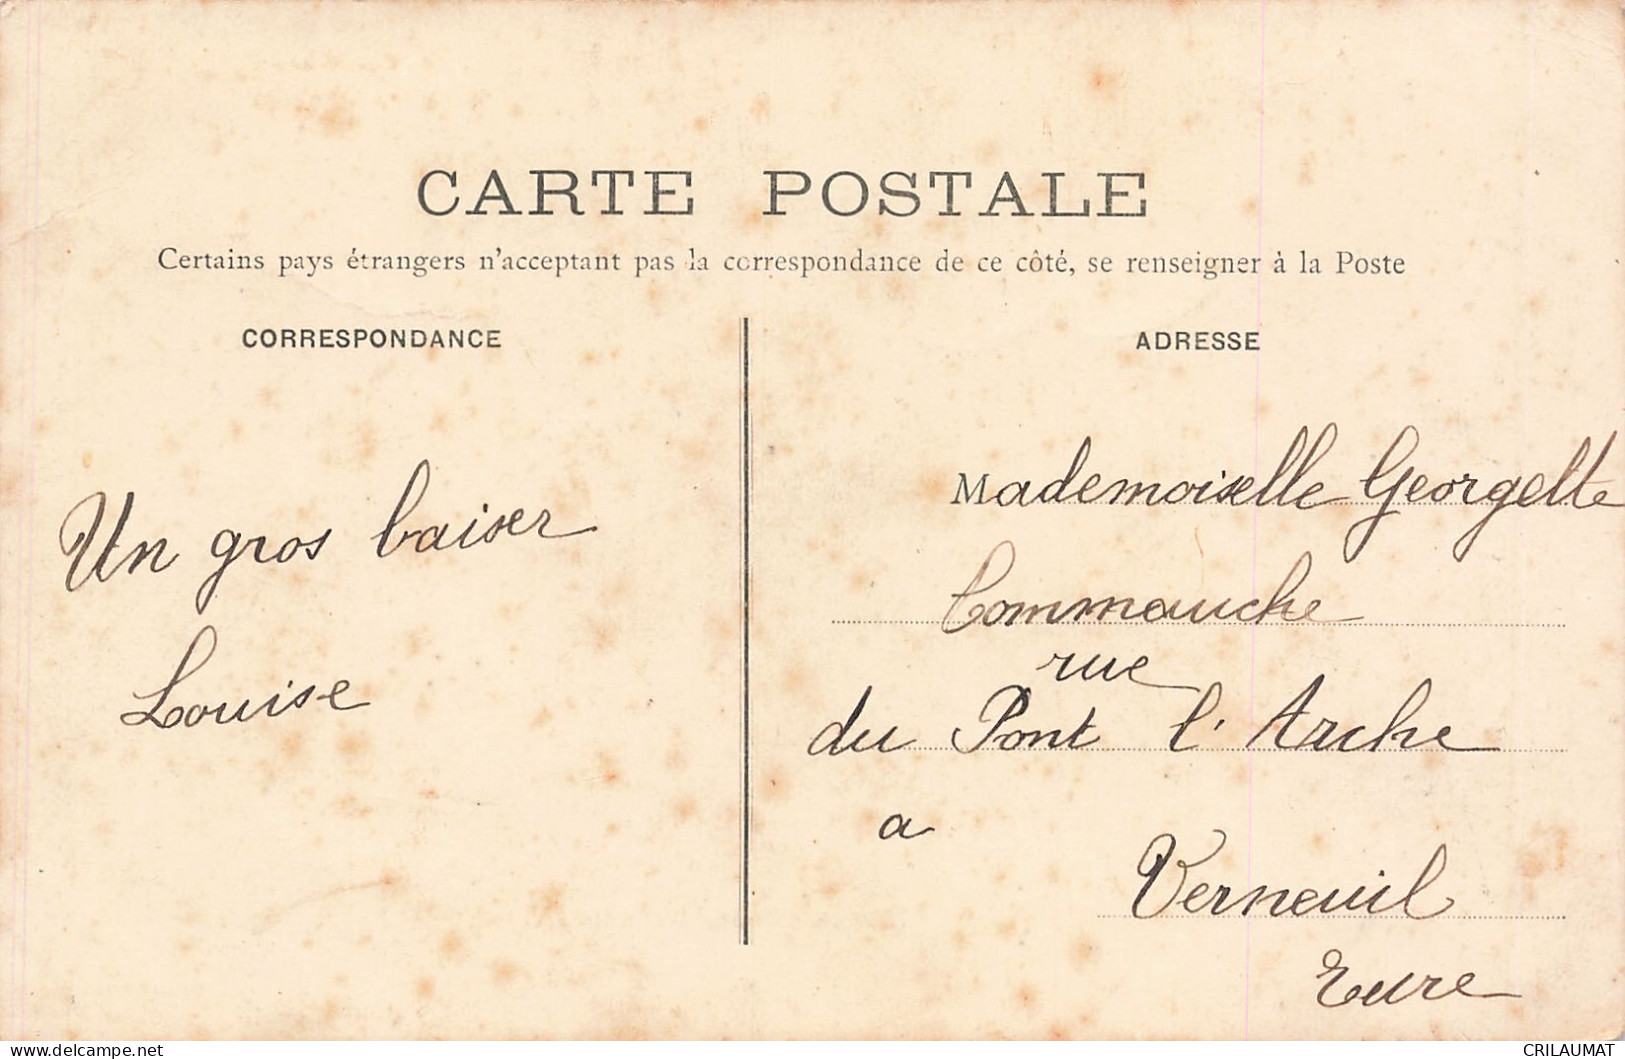 CARTE POSTALE
Certains pays étrangers n'acceptant pas la correspondance de ce côté, se renseigner à la Poste
CORRESPONDANCE
Un gros baiser
Louise
ADRESSE
Mademoiselle Georgette
Commauche
rue
du Pont l'Arche
a
Verneuil
Eure
delcampe.net
CRILAUMAT